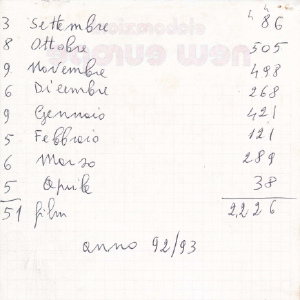 3 Settembre 86
8 Ottobre 505
9 Novembre 498
6 Dicembre 268
9 Gennaio 421
5 Febbraio 121
6 Marzo 289
5 Aprile 38
51 film 2226
anno 92/93